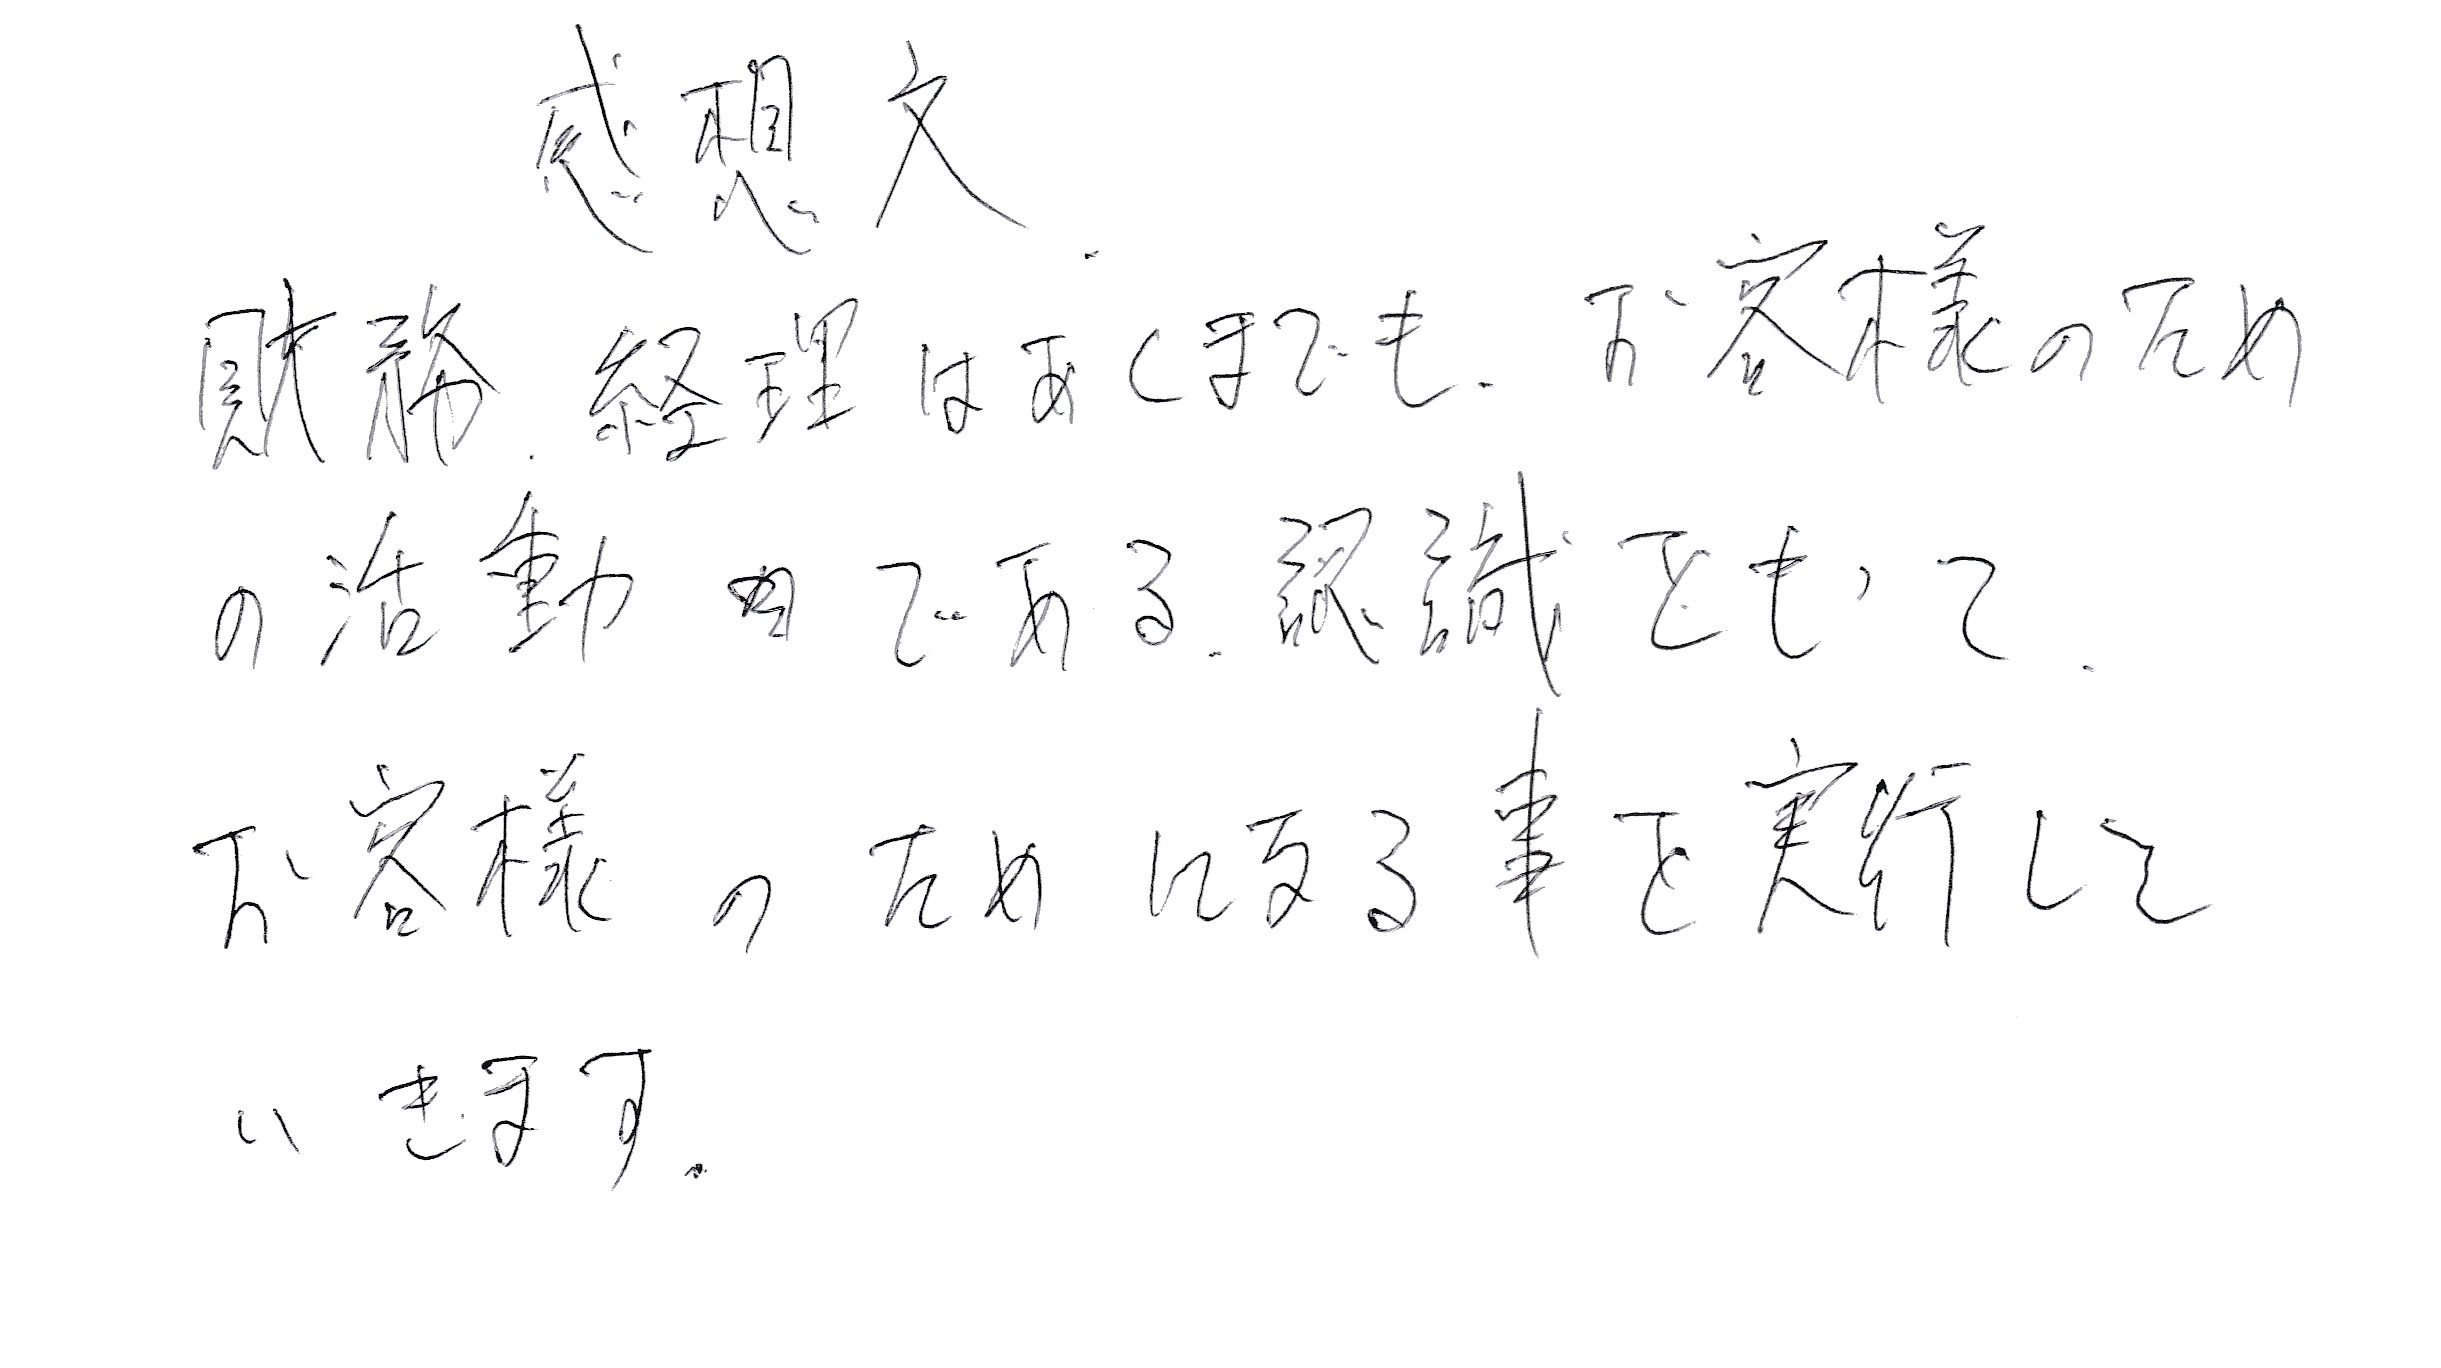 感想文.
財務.経理はあくまでも.お客様のため
の活動である.認識をもって.
お客様のためになる事を実行して
いきます.